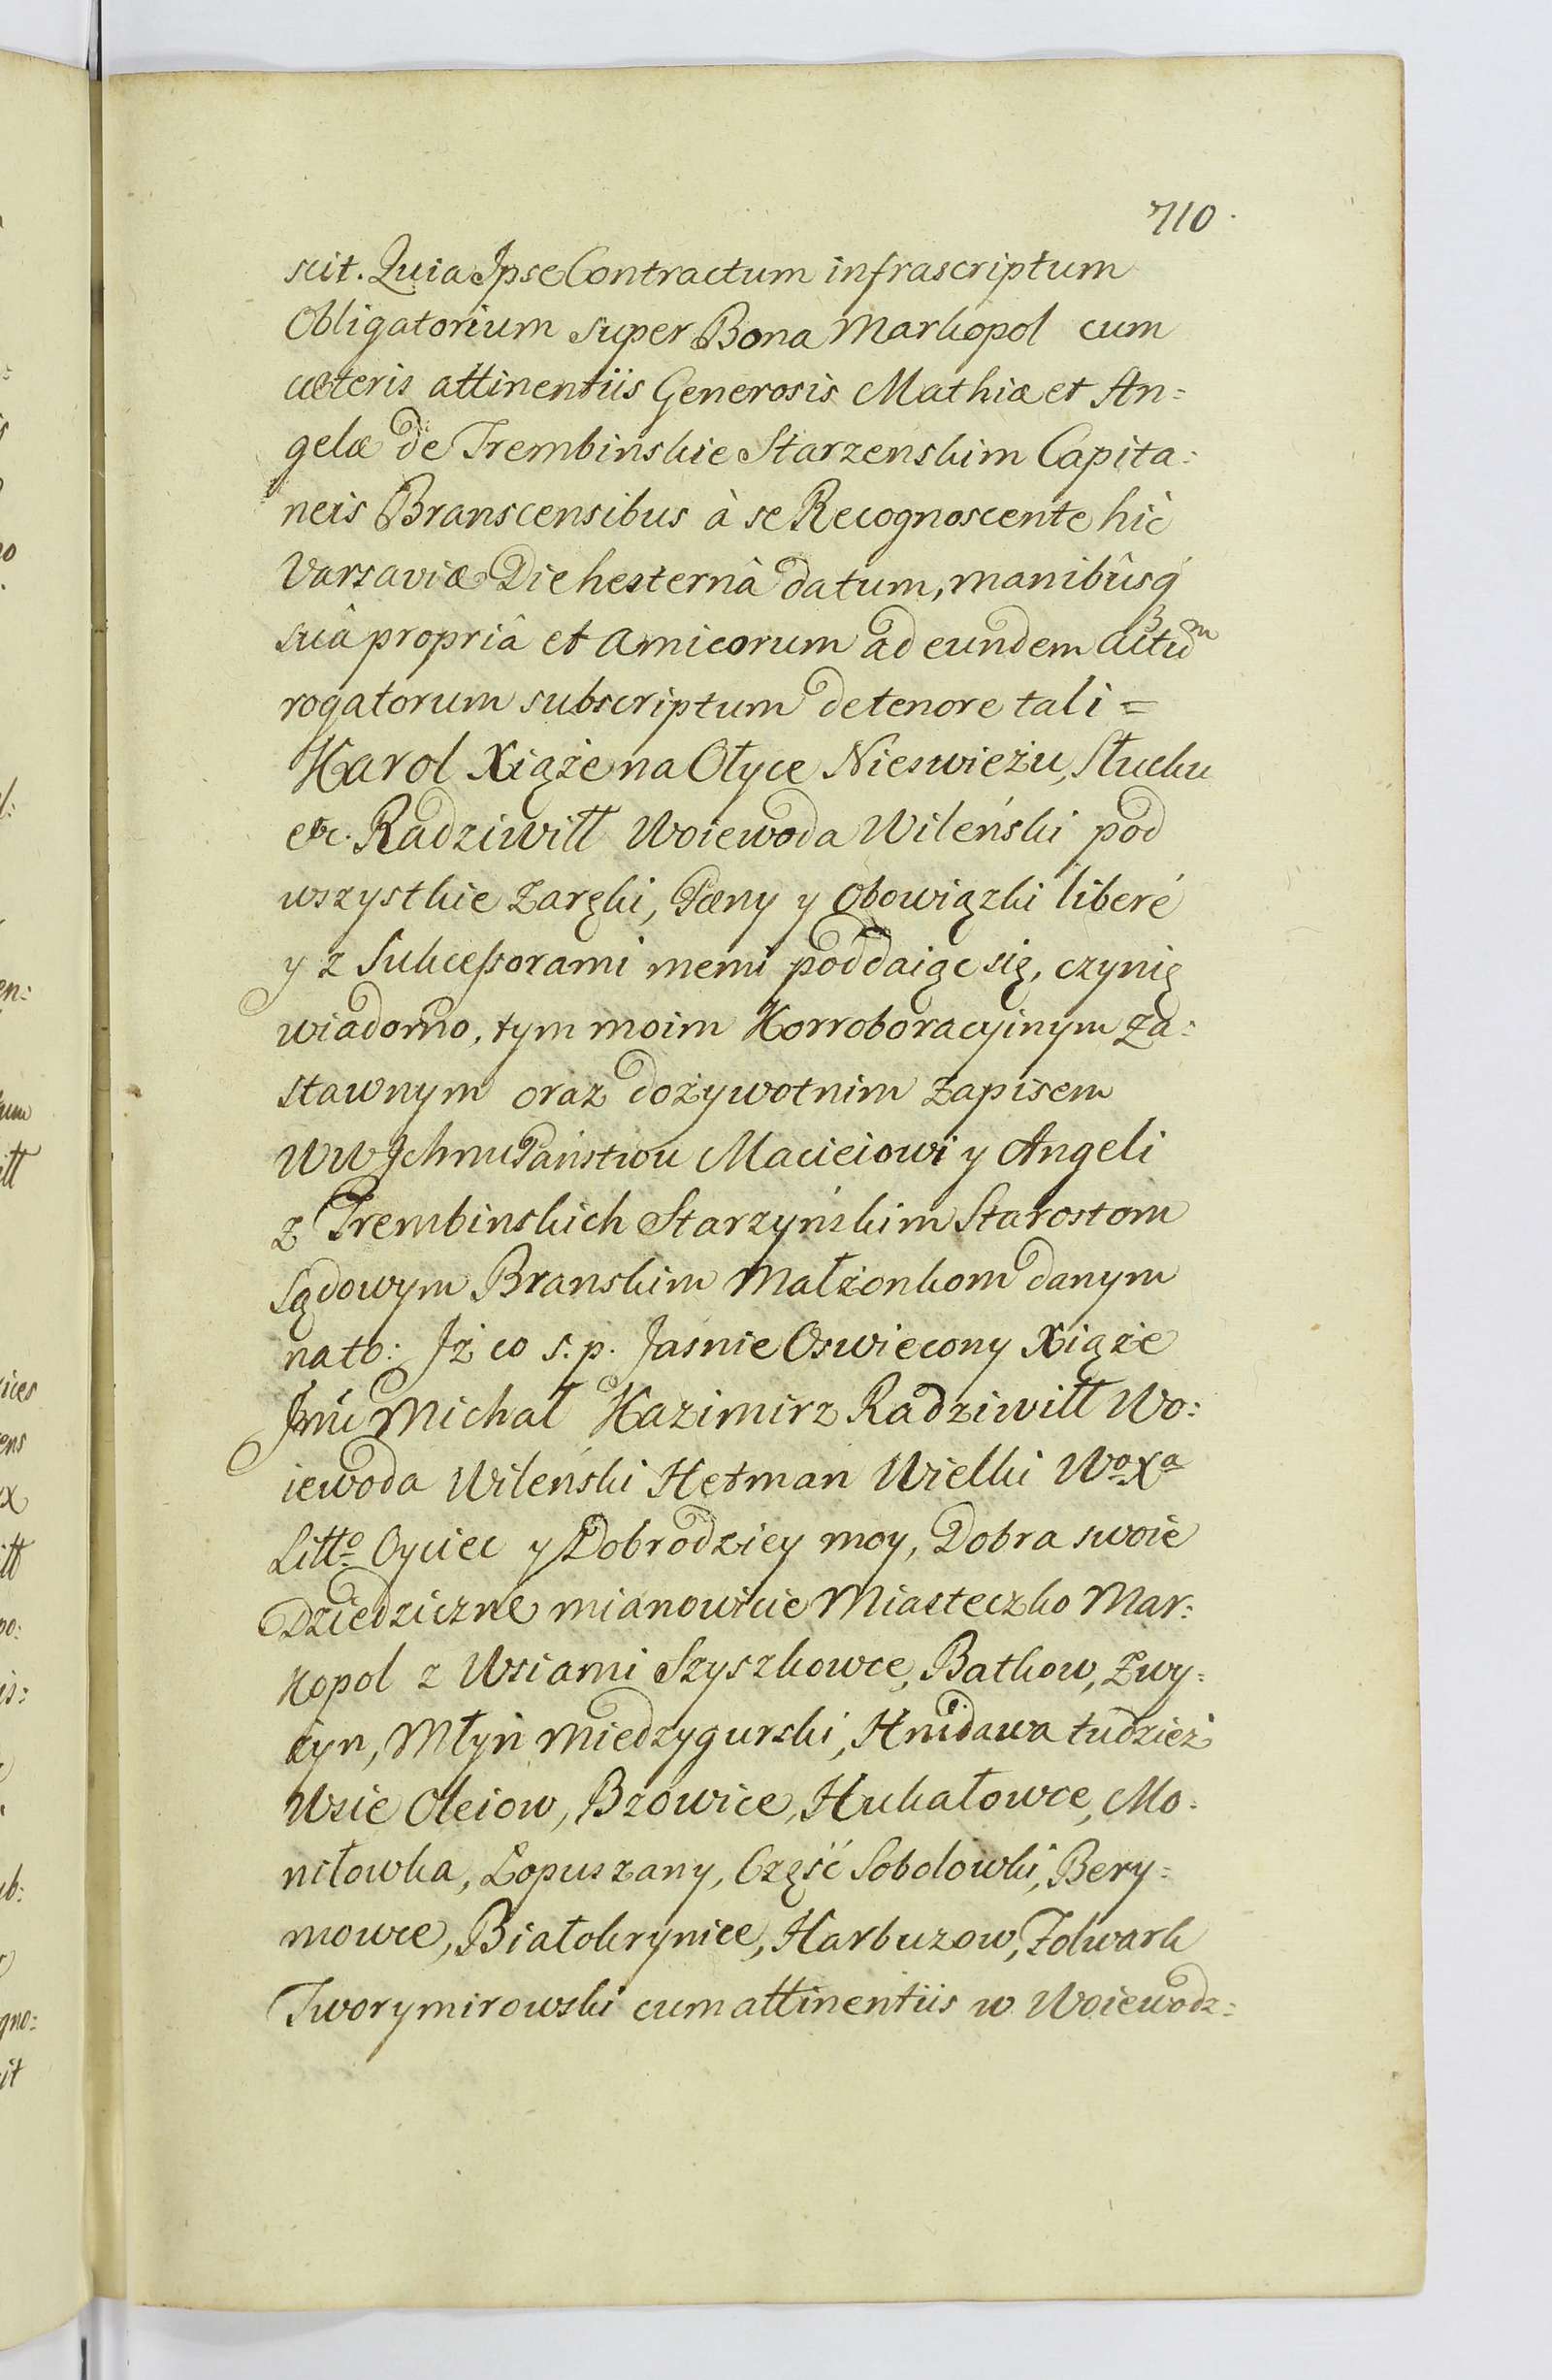 710.
scit. Quia Ipse Contractum infrascriptum
Obligatorium super Bona Markopol cum
cæteris attinentiis Generosis Mathiæ et An=
gelæ de Trembinskie Starzenskim Capita:
neis Branscensibus à se Recognoscente hic
Varsaviæ Die hesternâ datum, manibûsq́
suâ propriâ et Amicorum ad eundem actum
rogatorum subscriptum de tenore tali =
Karol Xiąże na Ołyce Nieswieżu, Słucku
etc. Radziwiłł Woiewoda Wileński pod
wszystkie Zaręki, Pæny y Obowiązki liberé
y z Sukceſsorami memi poddaiąc się, czynię
wiadomo, tym moim Korroboracyinym Za:
stawnym oraz dożywotnim Zapisem
WW Ichmć Państwu Macieiowi y Angeli
z Trembinskich Starzyńskim Starostom
Sądowym Branskim Małżonkom danym
na to: Iż co s. p. Jasnie Oswiecony Xiąże
Jmć Michał Kazimirz Radziwiłł Wo:
iewoda Wileński Hetman Wielki Wo Xa
Litto Oyciec y Dobrodziey moy, Dobra swoie
Dziedziczne mianowicie Miasteczko Mar:
kopol z Wsiami Szyszkowce, Batkow, Zwy=
żyn, Młyn Miedzygurski, Hnidawa tudzież
Wsie Oleiow, Bzowice, Hukałowce, Mo=
niłowka, Łopuszany, Część Sobolowki, Bery=
mowce, Białokrynice, Harbuzow, Folwark
Tworymirowski cum attinentiis w Woiewodz=